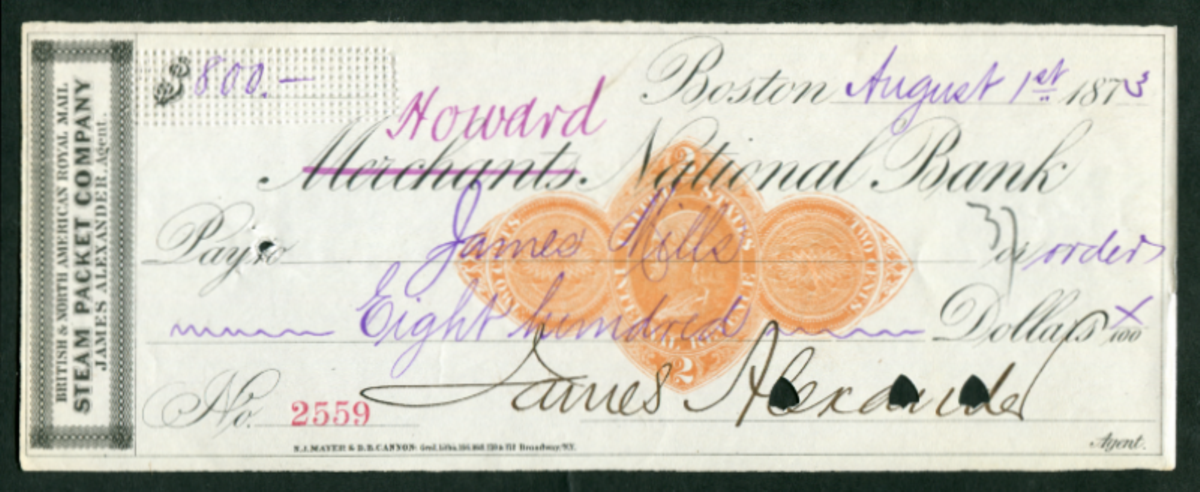 BRITISH & NORTH AMERICAN ROYAL MAIL
STEAM PACKET COMPANY
JAMES ALEXANDER, Agent.
$800.—
Boston August 1st 1873
Howard
Merchants National Bank
Pay to James Mills or order
Eight hundred Dollars x/100
No. 2559
James Alexander
Agent.
UNITED STATES
2